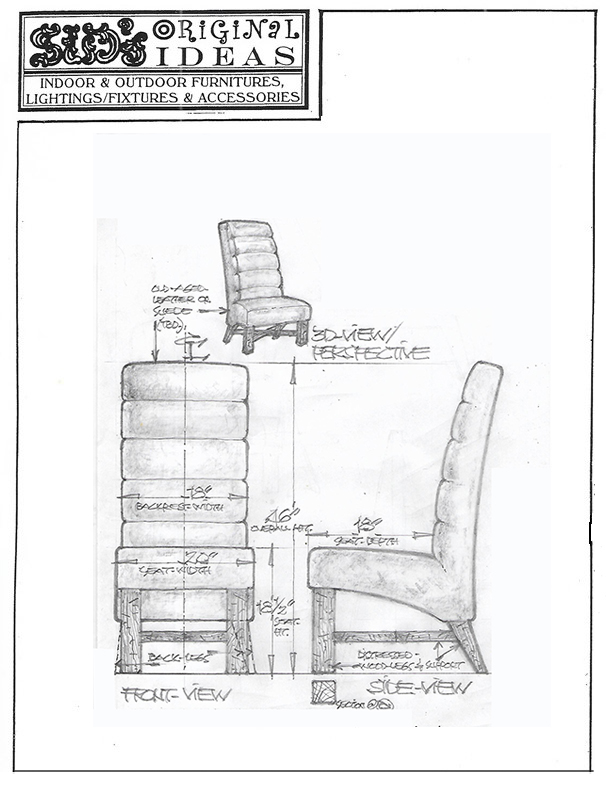 SID's ORiGiNaL
IDEAS
INDOOR & OUTDOOR FURNITURES,
LIGHTINGS/FIXTURES & ACCESSORIES
OLD-AGED
LEATHER OR
SUEDE
(TBD).
3D-VIEW/
PERSPECTIVE
18"
BACKREST-WIDTH
46"
OVERALL HT.
18"
SEAT-DEPTH
20"
SEAT-WIDTH
18 1/2"
SEAT-
HT.
BACK-LEGS
DISTRESSED-
WOOD-LEGS & SUPPORT
FRONT-VIEW
SIDE-VIEW